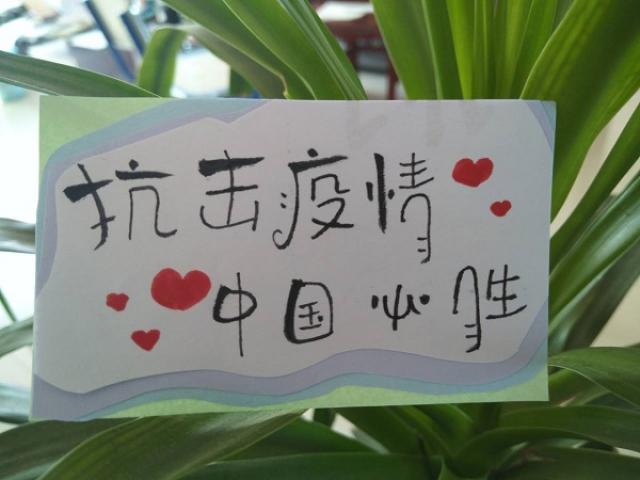 抗击疫情
中国必胜